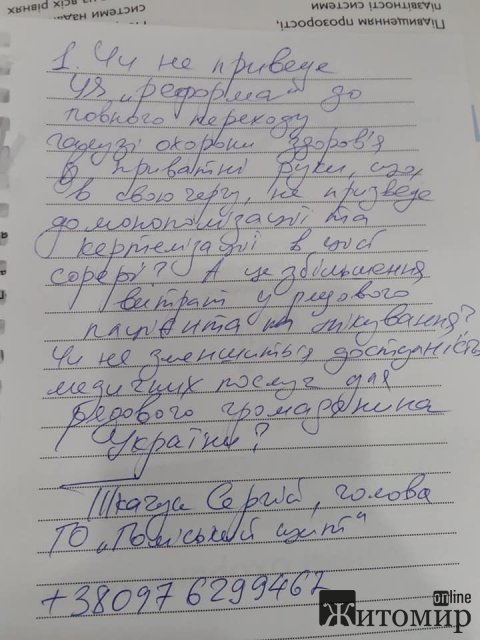 Підвищенням прозорості,
підзвітності системи
системи над
на всіх рівнях
1. Чи не приведе
ця „реформа" до
повного переходу
галузі охорони здоров'я
в приватні руки, що,
в свою чергу, не призведе
до монополізації та
кертелізації в цій
сфері? А це збільшення
витрат у рядового
пацієнта на лікування?
Чи не зменшиться доступність
медичних послуг для
рядового громадянина
України?
Ткачук Сергій, голова
ГО „Поліський щит"
+380976299462
Житомир
online